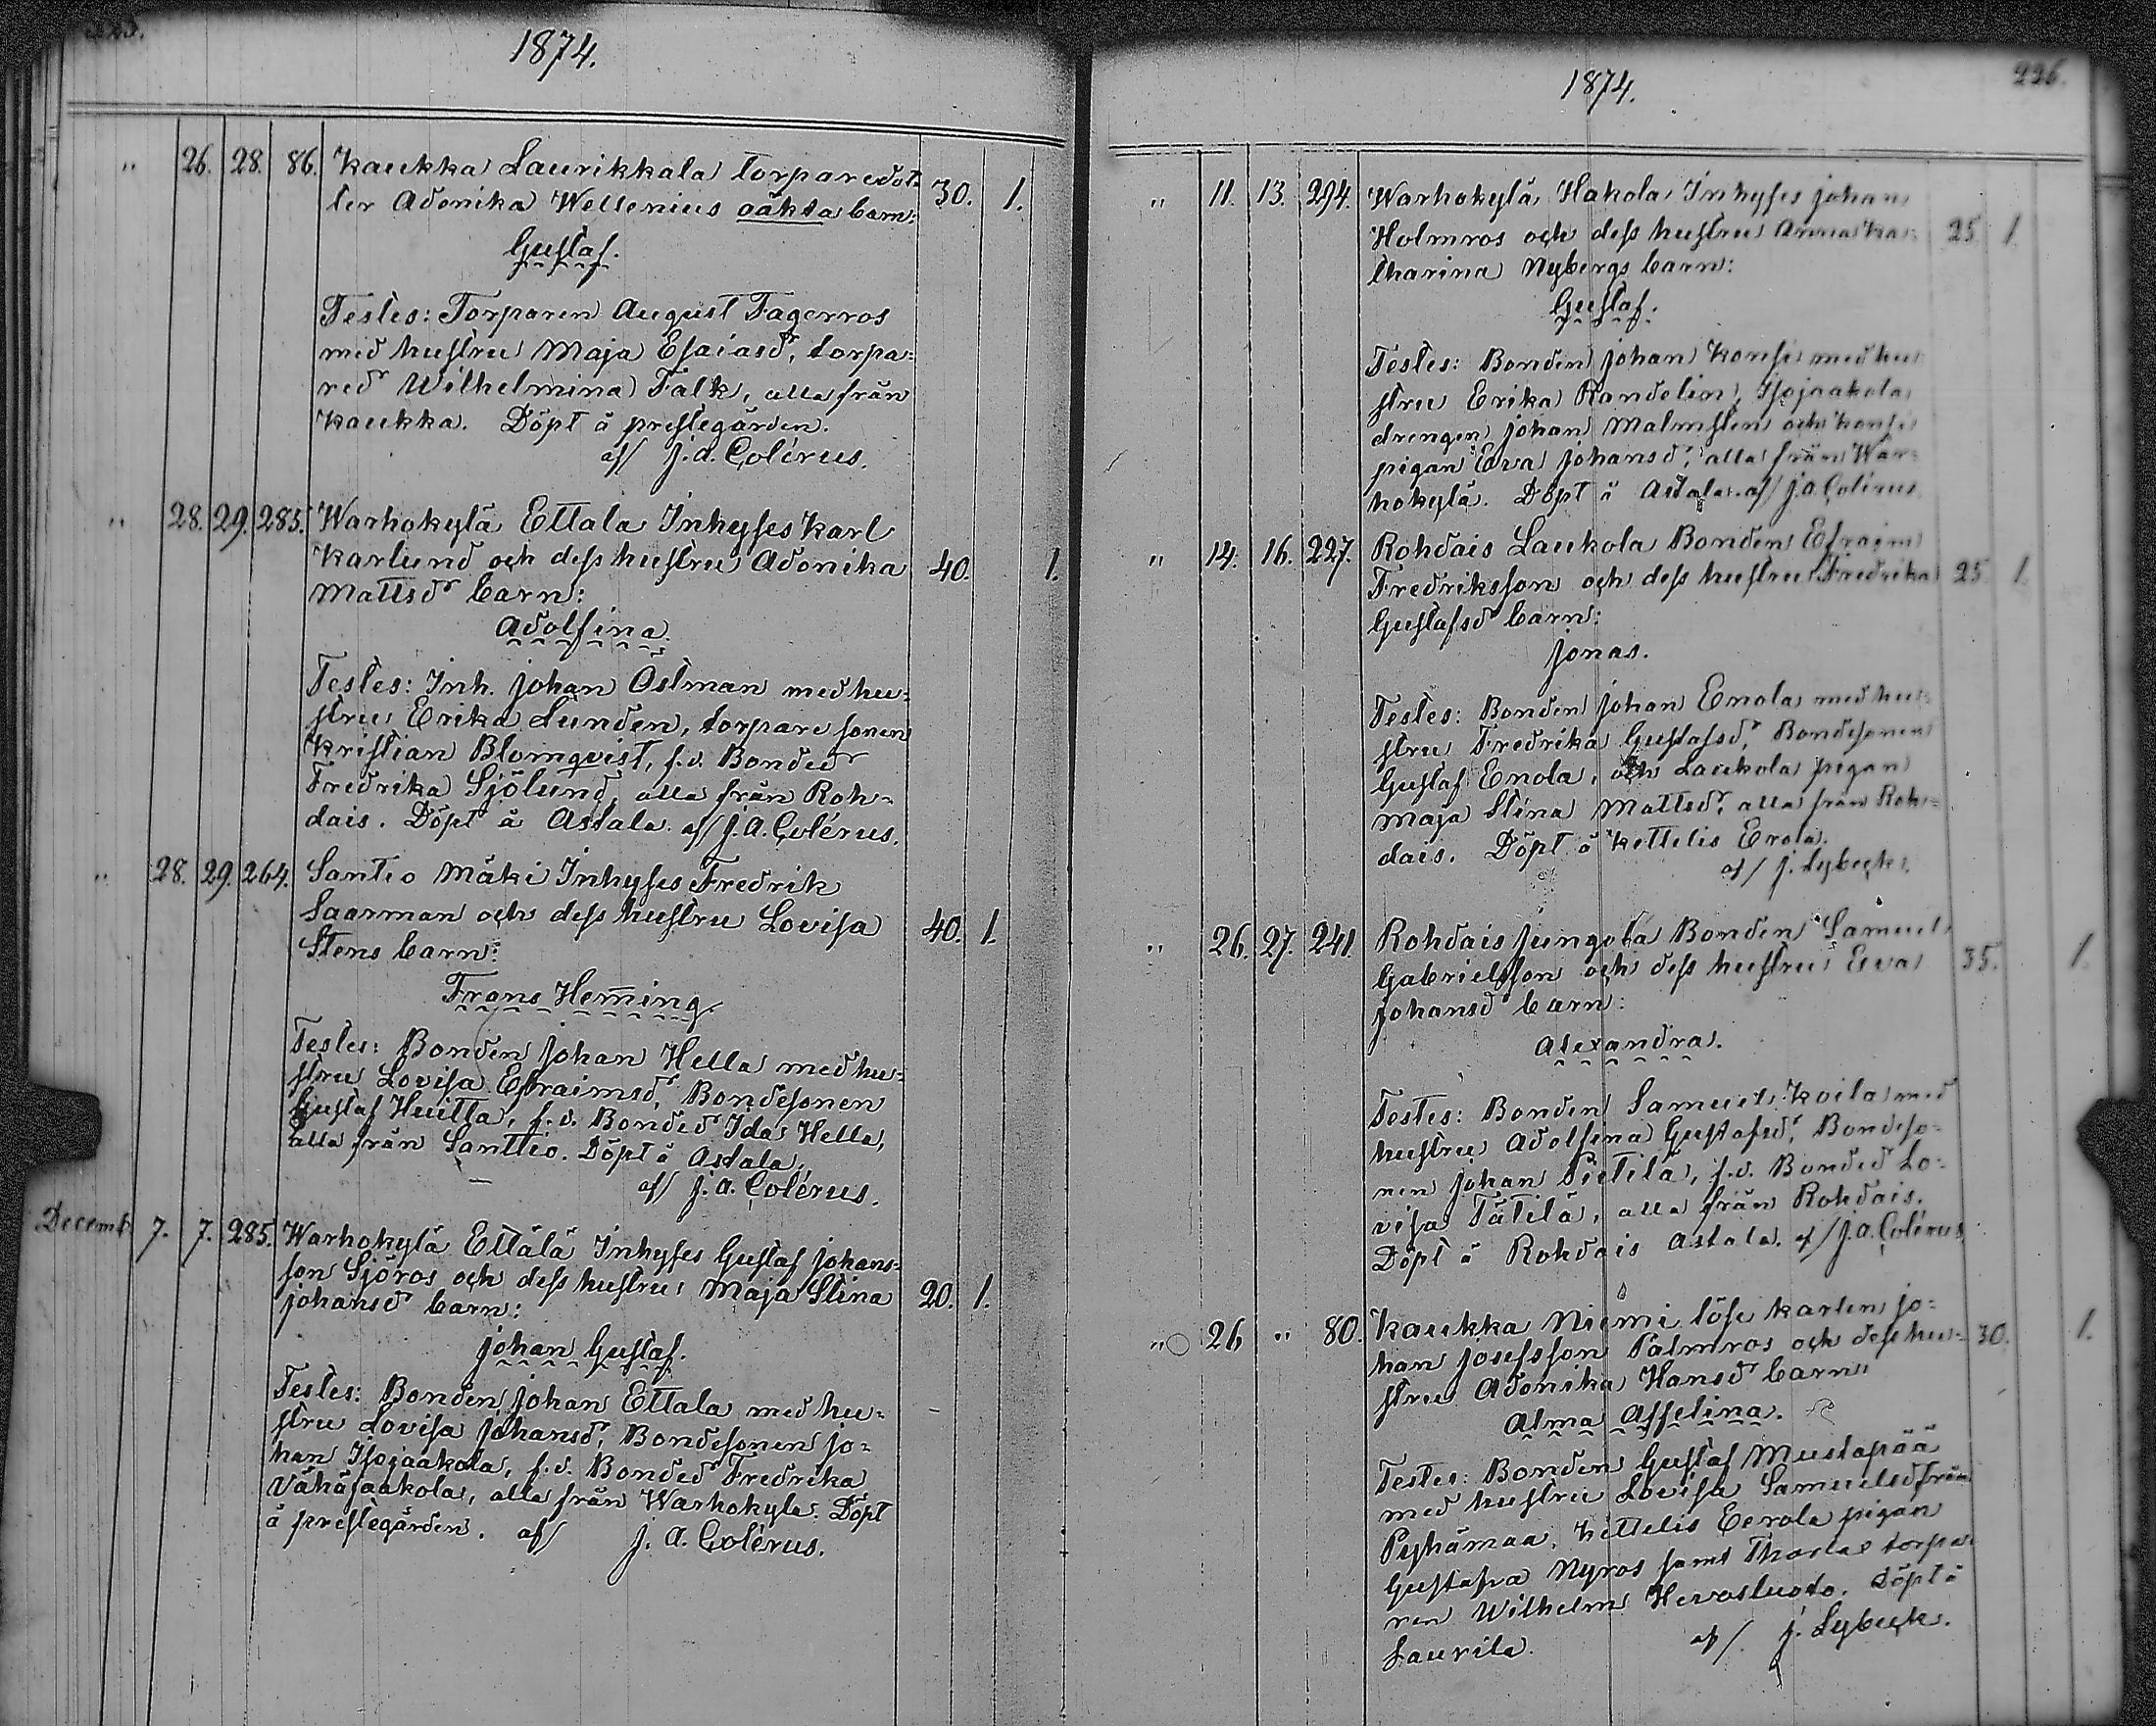 1874.
" 26. 28. 86. Kaukka Laurikkala torparedot=
ter Adonika Wellenius oäkta barn: 30. 1.
Gustaf.
Testes: Torparen August Fagerros
med hustru Maja Esaiasdr, torpa=
redr Wilhelmina Falk, alla från
Kaukka. Döpt å prestegården.
af/ J. A. Colérus.
" 28. 29. 285. Warhokylä Ettala Inhyses Karl
Karlund och dess hustru Adonika 40. 1.
Mattsdr barn:
Adolfina
Testes: Inh. Johan Östman med hu=
stru Erika Lunden, torpare sonen
Kristian Blomqvist, f.d. Bondedr
Fredrika Sjölund, alla från Roh=
dais. Döpt å Astala. af/ J. A. Colérus.
" 28. 29. 264. Santio Mäki Inhyses Fredrik
Saarman och dess hustru Lovisa 40. 1.
Stens barn:
Frans Hem̄ing.
Testes: Bonden Johan Hella med hu=
stru Lovisa Efraimsdr, Bondesonen
Gustaf Huitta, f.d. Bondedr Ida Hella,
alla från Santtio. Döpt å Astala.
af/ J. A. Colérus.
Decemb. 7. 7. 285. Warhokylä Ettälä Inhyses Gustaf Johans=
son Sjöros och dess hustru Maja Stina 20. 1.
Johansdr barn:
Johan Gustaf.
Testes: Bonden Johan Ettala med hu=
stru Lovisa Johansdr, Bondesonen Jo=
han Isojaakola, f.d. Bondedr Fredrika
Vähäjaakola, alla från Warhokyla. Döpt
å prestegården. af/ J. A. Colérus.
1874. 226.
" 11. 13. 294. Warhokylä Hakola Inhyses Johan
Holmros och dess hustru Anna Ka= 25 1
tharina Nybergs barn:
Gustaf.
Testes: Bonden Johan Konsi med hu=
stru Erika Randelin, Isojaakola
drengen Johan Malmsten och Konsi
pigan Eva Johansdr, alla från War=
hokylä. Döpt å Astala. af/ J. A. Colérus
" 14. 16. 227. Rohdais Laukola Bonden Efraim
Fredriksson och dess hustru Fredrika 25 1.
Gustafsdr barn:
Jonas.
Testes: Bonden Johan Enola med hu=
stru Fredrika Gustafsdr, Bondesonen
Gustaf Enola, och Laukola pigan
Maja Stina Mattsdr, alla från Roh=
dais. Döpt å Kettelis Erola.
af/ J. Lybeck.
" 26. 27. 241. Rohdais Jungola Bonden Samuel
Gabrielsson och dess hustru Eva 35. 1.
Johansdr barn:
Alexandra.
Testes: Bonden Samuel Koila med
hustru Adolfina Gustafsdr, Bondeso=
nen Johan Pietilä, f.d. Bondedr Lo=
visa Tätilä, alla från Rohdais.
Döpt å Rohdais Astala. af/ J. A. Colérus
" 26 " 80. Kaukka Niemi löse karlen Jo=
han Josefsson Palmros och dess hu= 30. 1.
stru Adonika Hansdr barn:
Alma Asselina.
Testes: Bonden Gustaf Mustapää
med hustru Lovisa Samuelsdr från
Pyhämaa, Kettelis Eerola pigan
Gustafva Nyros samt Thorlax torpa=
ren Wilhelm Hevosluoto. Döpt å
Laurila. af/. J. Lybeck.